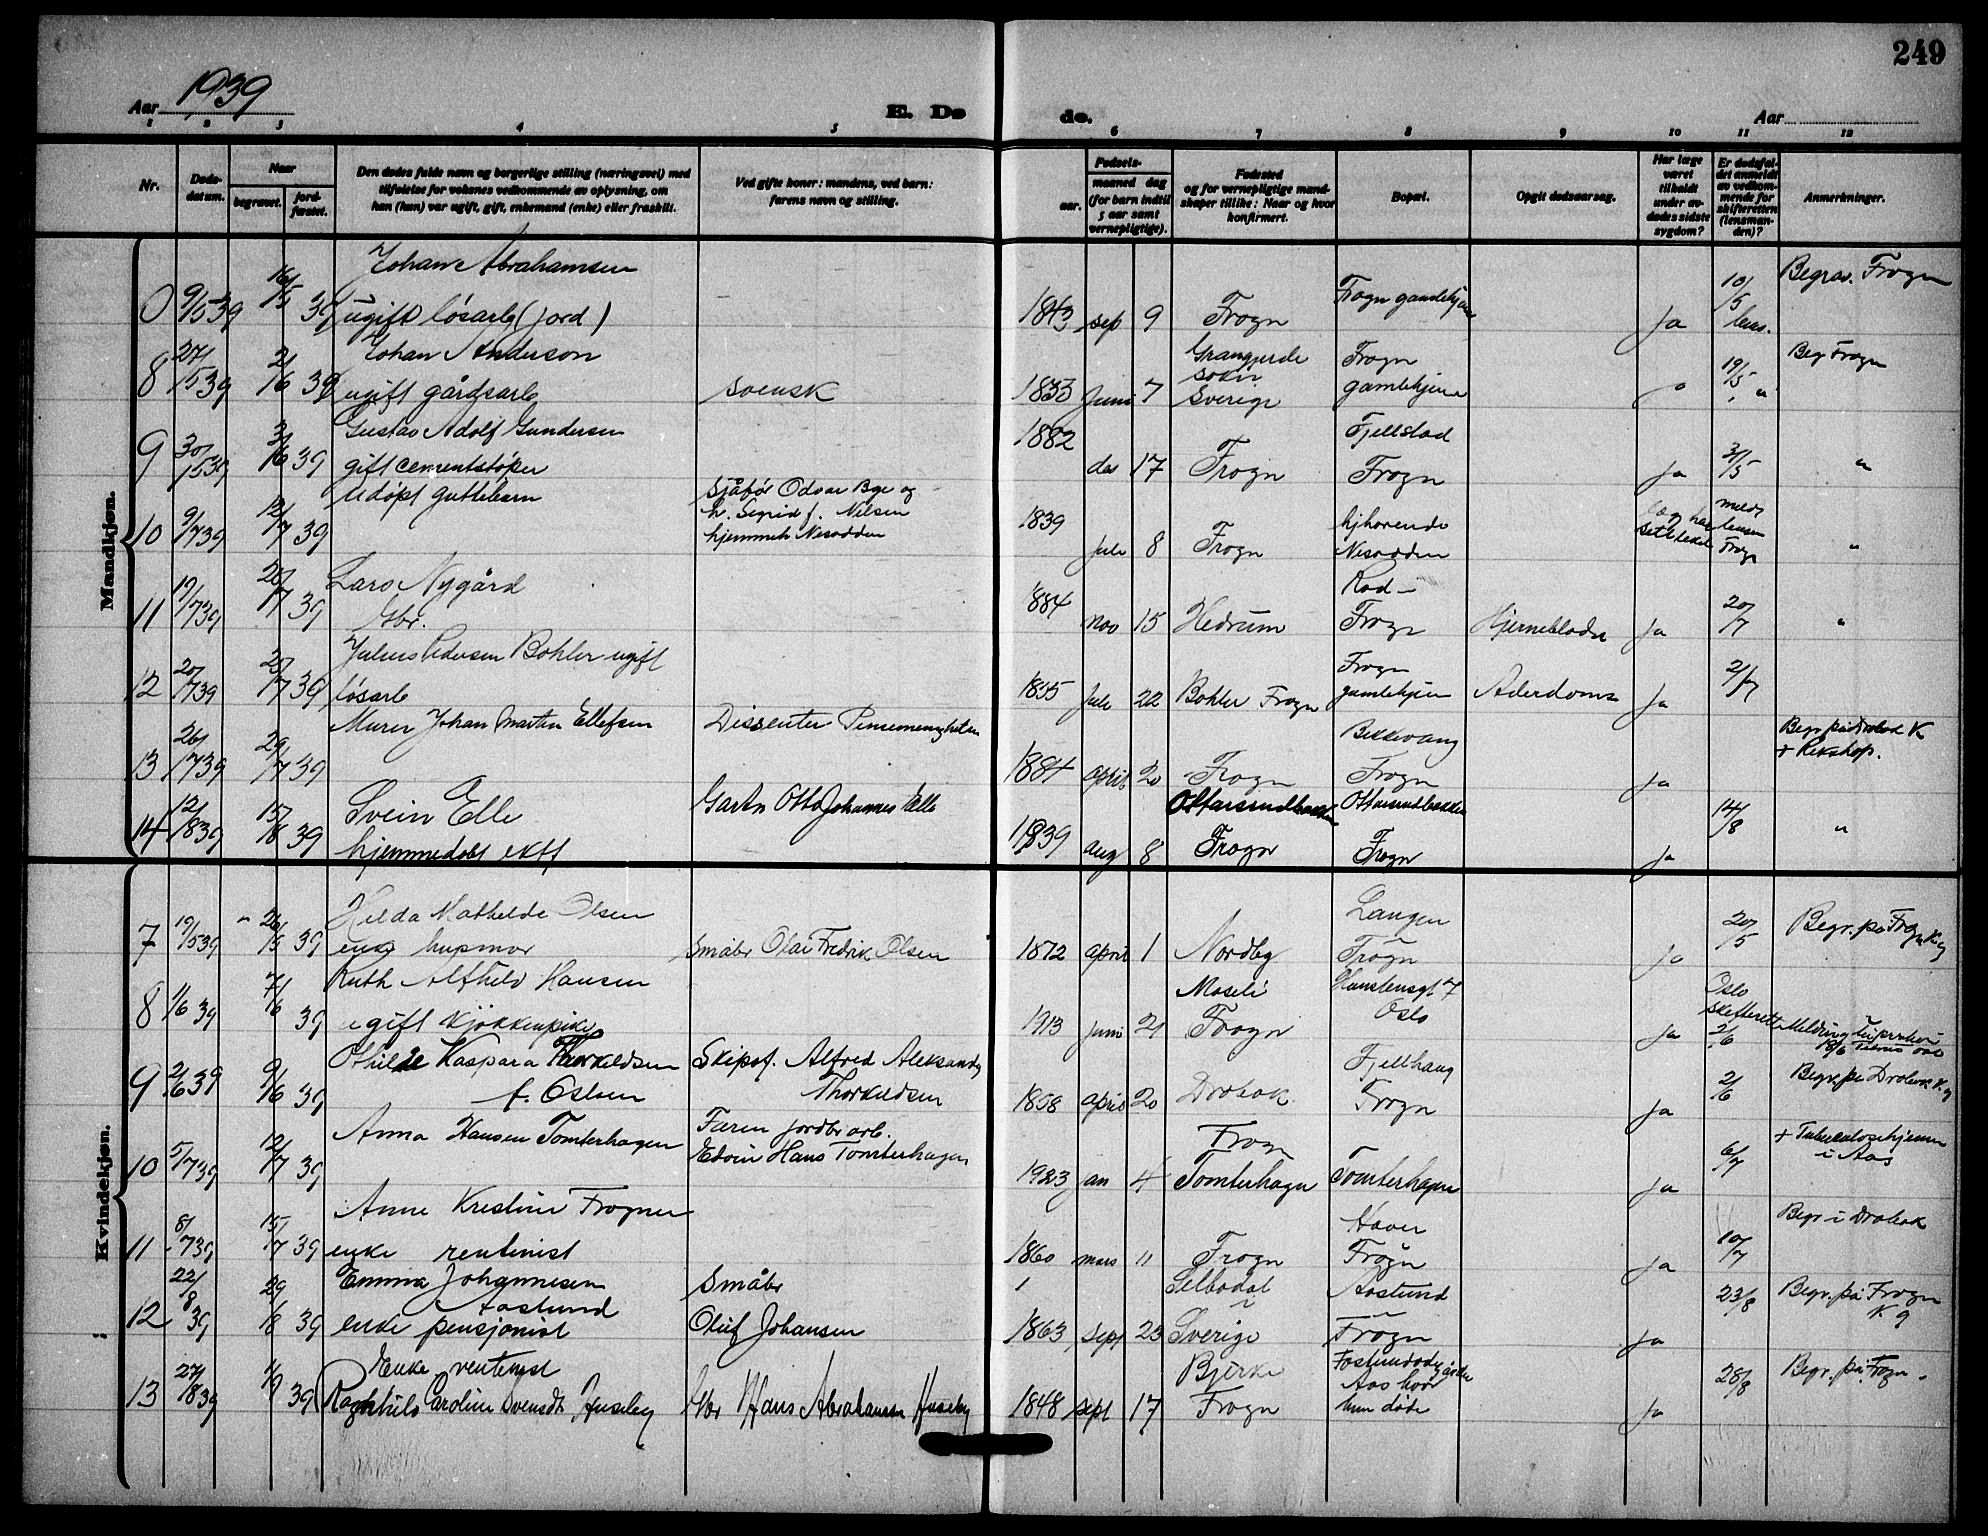 249
Aar 1939
E. Dø
de.
Aar
1 2 3 4 5 6 7 8 9 10 11 12
Nr.
Døds-
datum.
Naar
begravet.
jord-
fæstet.
Den dødes fulde navn og borgerlige stilling (næringsvei) med
tilføielse for voksnes vedkommende av oplysning, om
han (hun) var ugift, gift, enkemand (enke) eller fraskilt.
Ved gifte koner: mandens, ved barn:
farens navn og stilling.
Fødsels-
aar.
maaned dag
(for barn indtil
5 aar samt
vernepligtige).
Fødested
og for vernepligtige mand-
skaper tillike: Naar og hvor
konfirmert.
Bopæl.
Opgit dødsaarsag.
Har læge
været
tilkaldt
under av-
dødes sidste
sygdom?
Er dødsfal-
det anmeldt
av vedkom-
mende for
skifteretten
(lensman-
den)?
Anmerkninger.
Mandkjøn.
Johan Abrahamsen
9/5 39 16/5 39 ugift løsarb (jord) 1843 sep 9 Frogn Frogn gamlehjem Ja 10/5 lens. Begrav. Frogn
Johan Anderson
8 27/5 39 2/6 39 ugift gårdsarb svensk 1833 Juni 7 Sverige Frogn gamlehjem 19/5 " Beg Frogn
Gustav Adolf Gundersen
9 30/5 39 3/6 39 gift cementstøper 1882 des 17 Frogn Fjellstad Frogn Ja 31/5 "
Udøpt guttebarn
10 9/7 39 12/7 39 Odvar Bye og
h. Sigrid f. Nilsen
hjemmeh Nesodden
1939 Juli 8 Frogn hjhørende Nesodden Frogn "
Lars Nygård
11 19/7 39 39 Gbr. 884 nov 15 Hedrum Frogn Ja 20/7 "
Julius Pedersen Bohler ugift
12 20/7 39 39 løsarb 1855 Juli 22 Bohler Frogn Frogn gamlehjem Ja 21/7
Murer Johan Martin Ellefsen Dissenter
13 26/7 39 29/7 39 1884 april 20 Frogn Bekkevang Frogn Ja + Rikshop.
Svein Elle Gartn Otto Johannes Elle
14 12/8 39 15/8 39 hjemmedøbt ekte 1939 aug 8 Frogn Frogn Ja 14/8 "
Kvindekjøn.
Hilda Mathilde Olsen
7 19/5 39 26/5 39 enke husmor Småbr Olai Fredrik Olsen 1872 april 1 Nordby Langen Frogn Ja 20/5 Begr. på Frogn
Ruth Alfhild Hansen
8 1/6 39 7/6 39 ugift kjøkkenpike 1913 Juni 21 Moseli Frogn Oslo Ja Oslo skifterett 2/6
Othilde Kaspara Thorkildsen Skipsf. Alfred Aleksander
9 2/6 39 9/6 39 f. Olsen Thorkildsen 1858 april 20 Drøbak Fjellhaug Frogn Ja 2/6 Begr. på Drøbak K.g
Anna Hansen Tomterhagen Faren jordbr arb.
10 5/7 39 12/7 39 Edvin Hans Tomterhagen 1923 jan 4 Frogn Tomterhagn Tomterhagen Ja 6/7 + Tuberculosehjemm
i Aas
Anne Kristine Frogner
11 8/7 39 15/7 39 enke rentenist 1860 mars 11 Frogn Haver Frogn Ja 10/7 Begr i Drøbak
Emma Johannesen Småbr
Aaslund
12 22/8 39 29/8 39 enke pensjonist Oluf Johansen 1863 sept 23 Selbodal Sverige Aaslund Frogn Ja 23/8 Begr. på Frogn
K. g
Enke rentenist
13 27/8 39 39 Ragnhild Caroline Svensdt Huseby Gbr Hans Abrahamsen Huseby 1848 sept 17 Bjerke Frogn Aas hvor
hun døde Ja 28/8 Begr. på Frogn